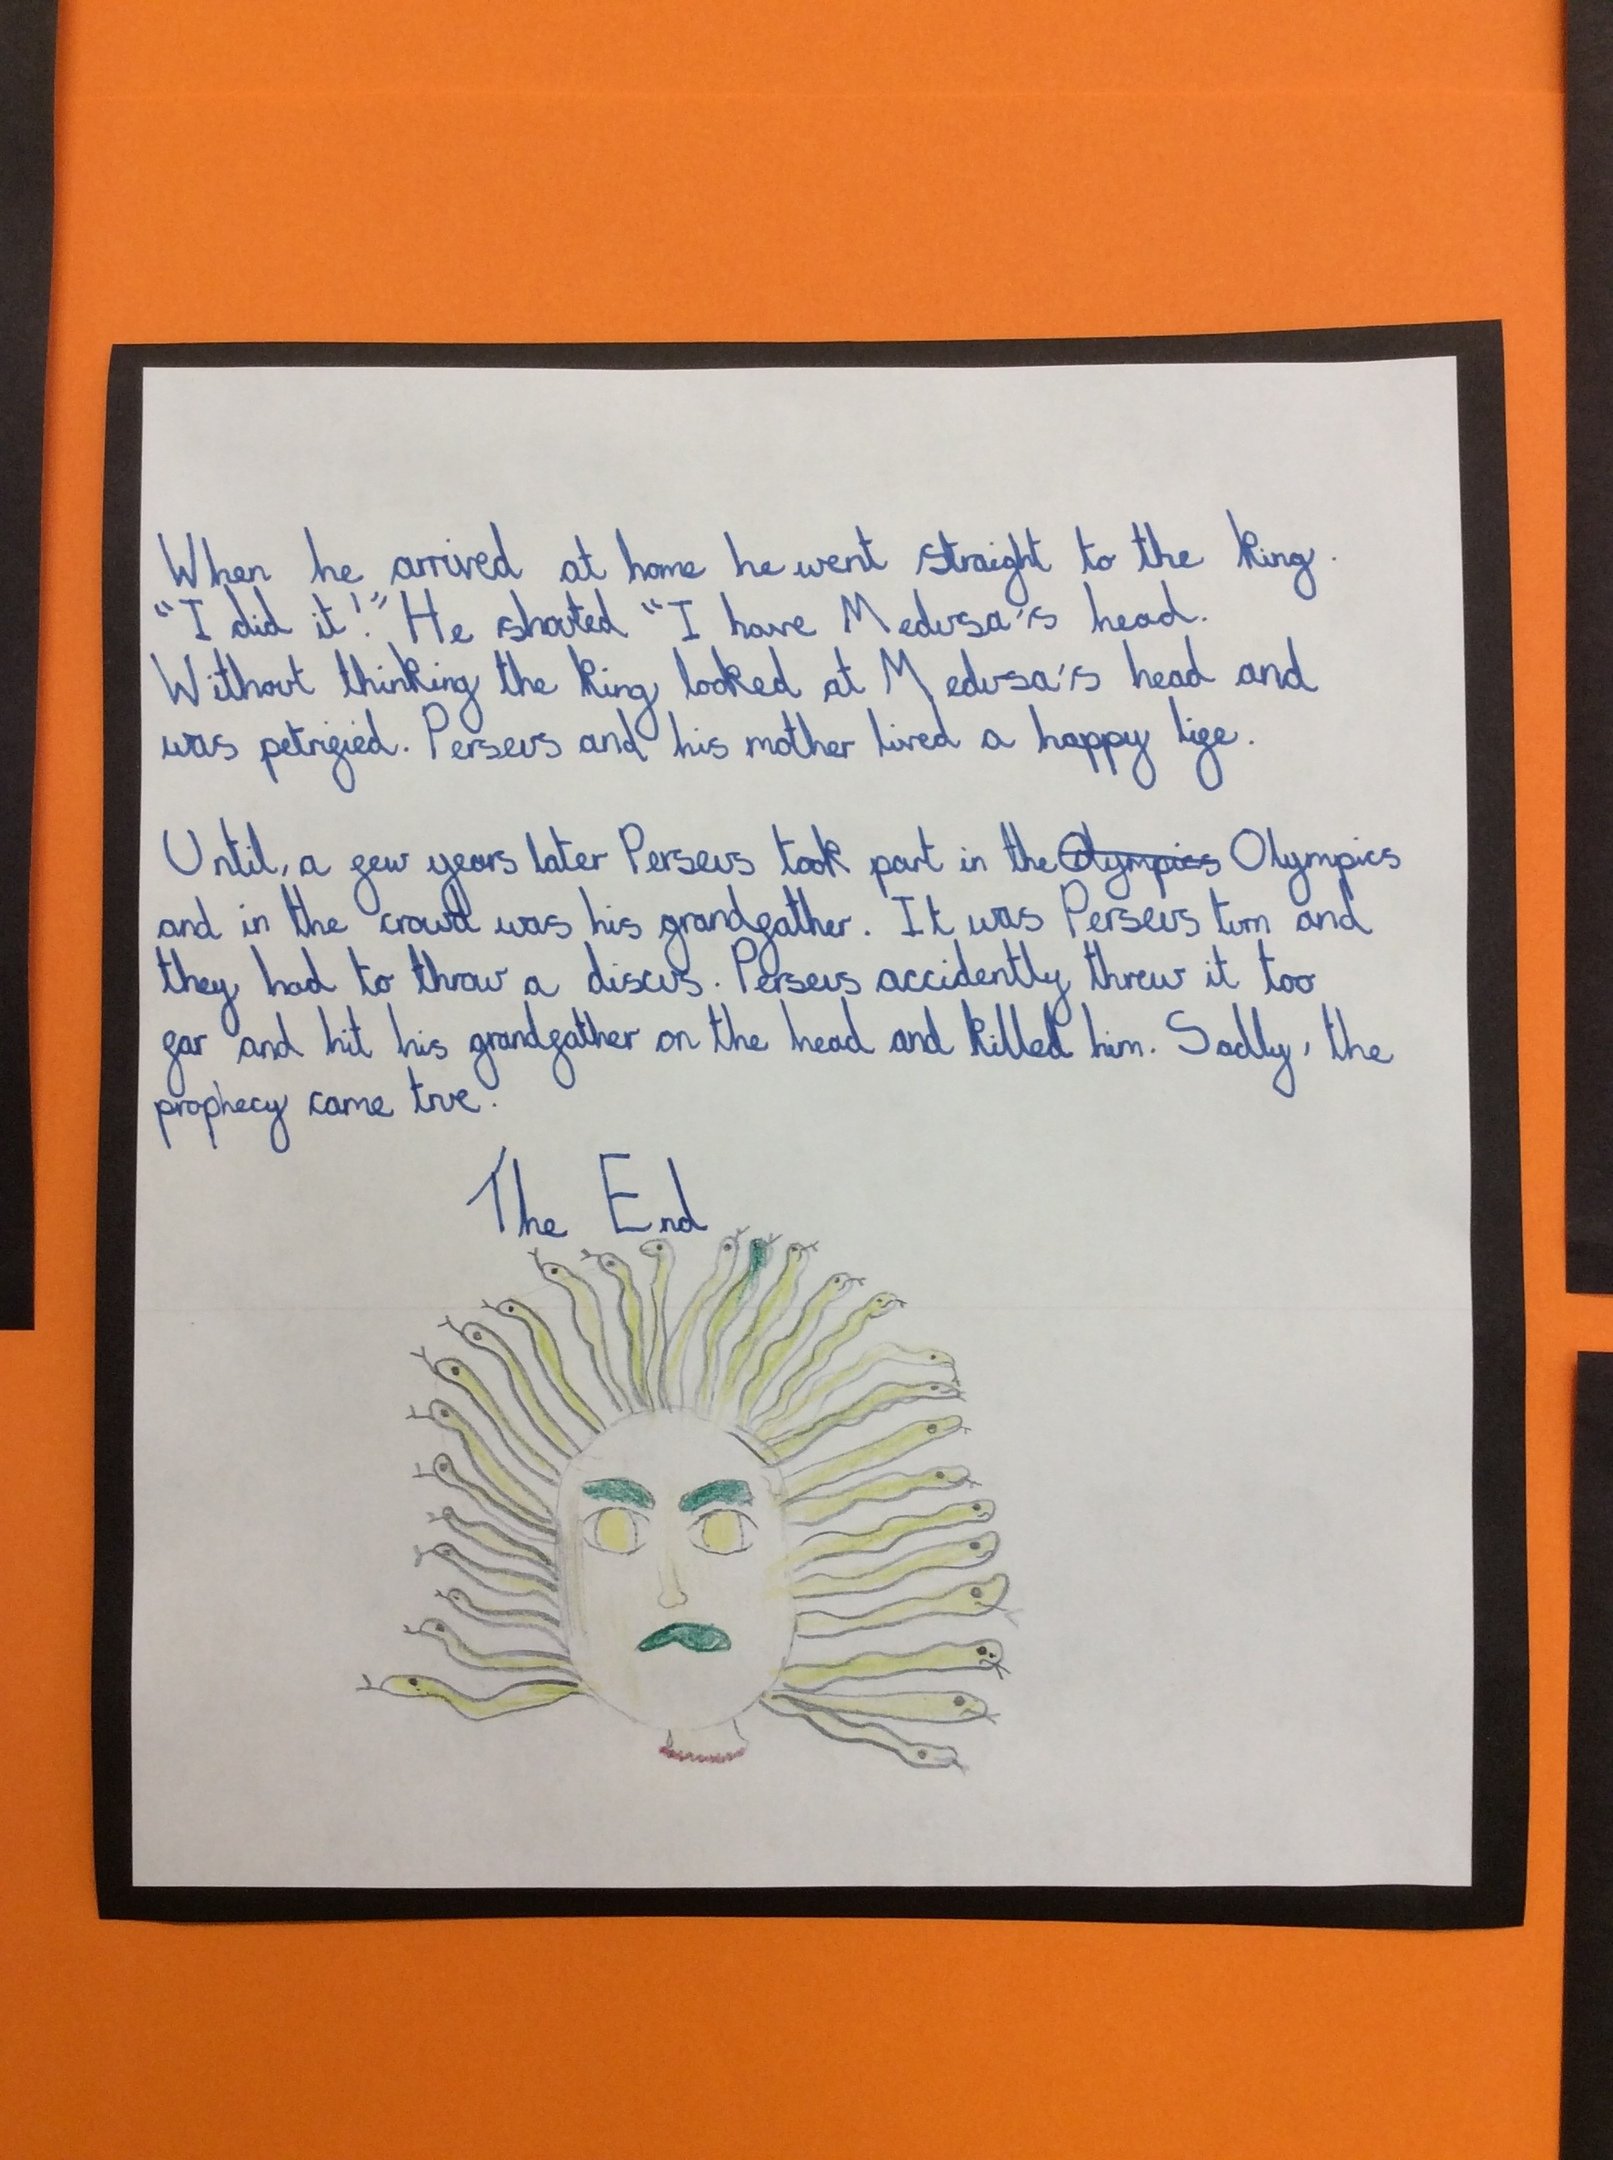 When he arrived at home he went straight to the king.
"I did it!" He shouted "I have Medusa's head.
Without thinking the king looked at Medusa's head and
was petrified. Perseus and his mother lived a happy life.
Until, a few years later Perseus took part in the Olympics Olympics
and in the crowd was his grandfather. It was Perseus turn and
they had to throw a discus. Perseus accidently threw it too
far and hit his grandfather on the head and killed him. Sadly, the
prophecy came true.
The End